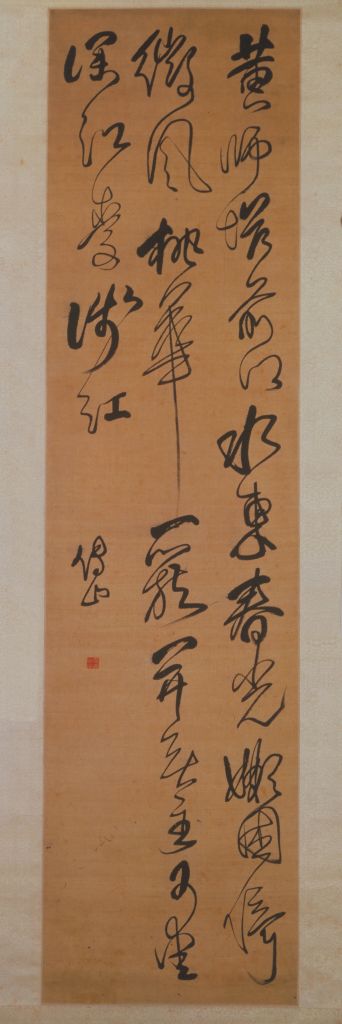 黄師塔前江水東春光嬾困倚
微風桃華一簇開無主可愛
深紅愛淺紅
傅山